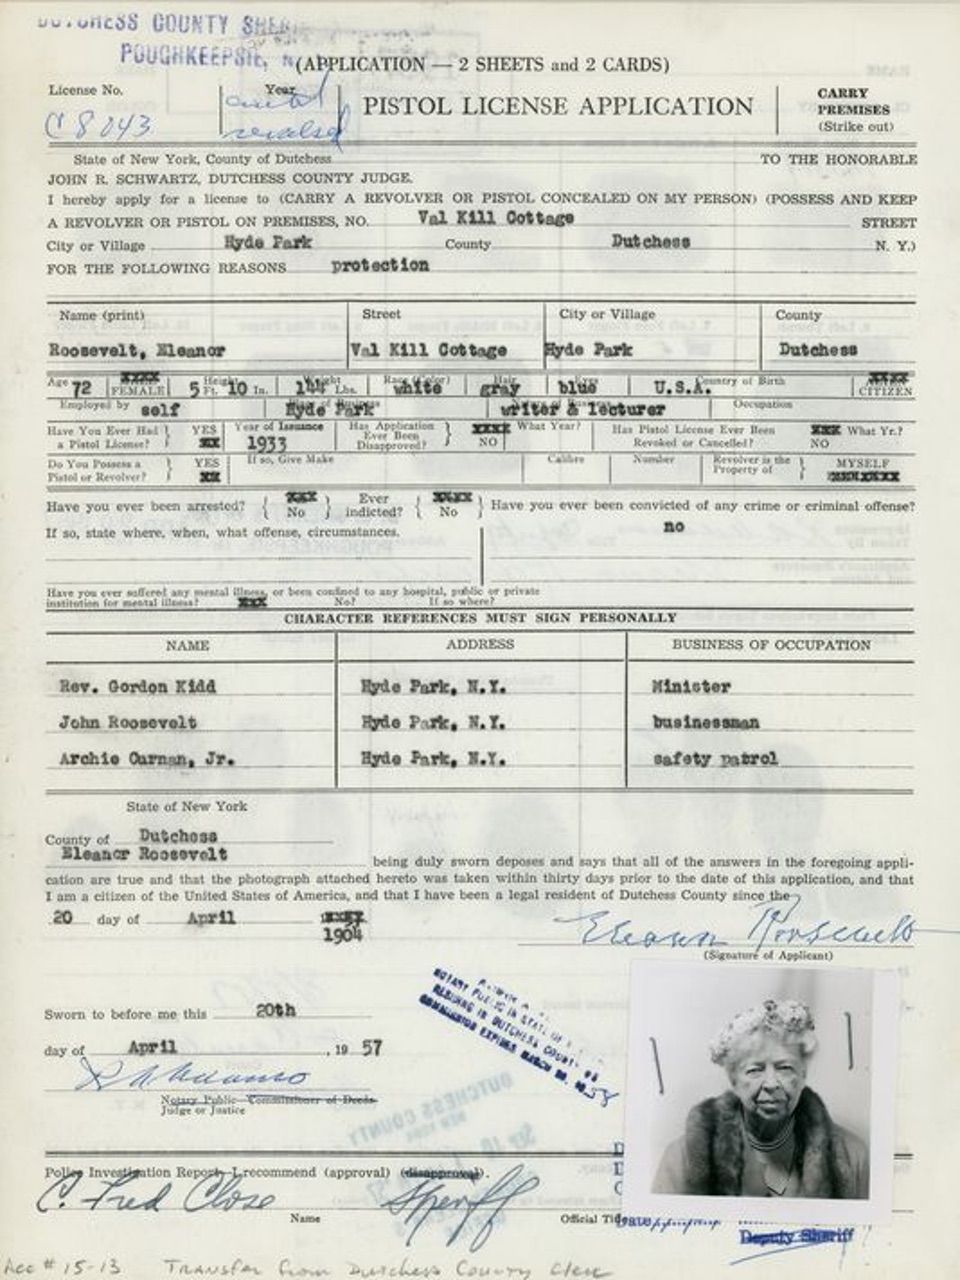 DUTCHESS COUNTY
POUGHKEEPSIE, N.
(APPLICATION — 2 SHEETS and 2 CARDS)
License No.
Year
C 8043
PISTOL LICENSE APPLICATION
CARRY
PREMISES
(Strike out)
State of New York, County of Dutchess
TO THE HONORABLE
JOHN R. SCHWARTZ, DUTCHESS COUNTY JUDGE.
I hereby apply for a license to (CARRY A REVOLVER OR PISTOL CONCEALED ON MY PERSON) (POSSESS AND KEEP
A REVOLVER OR PISTOL ON PREMISES, NO. Val Kill Cottage STREET
City or Village Hyde Park County Dutchess N. Y.)
FOR THE FOLLOWING REASONS protection
Name (print) Street City or Village County
Roosevelt, Eleanor Val Kill Cottage Hyde Park Dutchess
Age 72 FEMALE 5 Ft. 10 In. Height Lbs. white gray blue U.S.A. Country of Birth CITIZEN
Employed by self Hyde Park writer & lecturer Occupation
Have You Ever Had a Pistol License? YES Year of Issuance 1933 Has Application Ever Been Disapproved? NO What Year? Has Pistol License Ever Been Revoked or Cancelled? NO What Yr.?
Do You Possess a Pistol or Revolver? YES If so, Give Make Calibre Number Revolver is the Property of MYSELF
Have you ever been arrested? No Ever indicted? No Have you ever been convicted of any crime or criminal offense?
no
If so, state where, when, what offense, circumstances.
Have you ever suffered any mental illness, or been confined to any hospital, public or private
institution for mental illness? No? If so where?
CHARACTER REFERENCES MUST SIGN PERSONALLY
NAME ADDRESS BUSINESS OF OCCUPATION
Rev. Gordon Kidd Hyde Park, N.Y. Minister
John Roosevelt Hyde Park, N.Y. businessman
Archie Curnan, Jr. Hyde Park, N.Y. safety patrol
State of New York
County of Dutchess
Eleanor Roosevelt being duly sworn deposes and says that all of the answers in the foregoing appli-
cation are true and that the photograph attached hereto was taken within thirty days prior to the date of this application, and that
I am a citizen of the United States of America, and that I have been a legal resident of Dutchess County since the
20 day of April
1904
Eleanor Roosevelt
(Signature of Applicant)
NOTARY PUBLIC IN STATE OF
RESIDING IN DUTCHESS COUNTY
COMMISSION EXPIRES MARCH 58
Sworn to before me this 20th
day of April , 19 57
Notary Public Commissioner of Deeds
Judge or Justice
DUTCHESS COUNTY
Police Investigation Report, I recommend (approval) (disapproval).
C. Fred Close Sheriff
Name Official Title
Date
Deputy Sheriff
Acc # 15-13 Transfer from Dutchess County Clerk